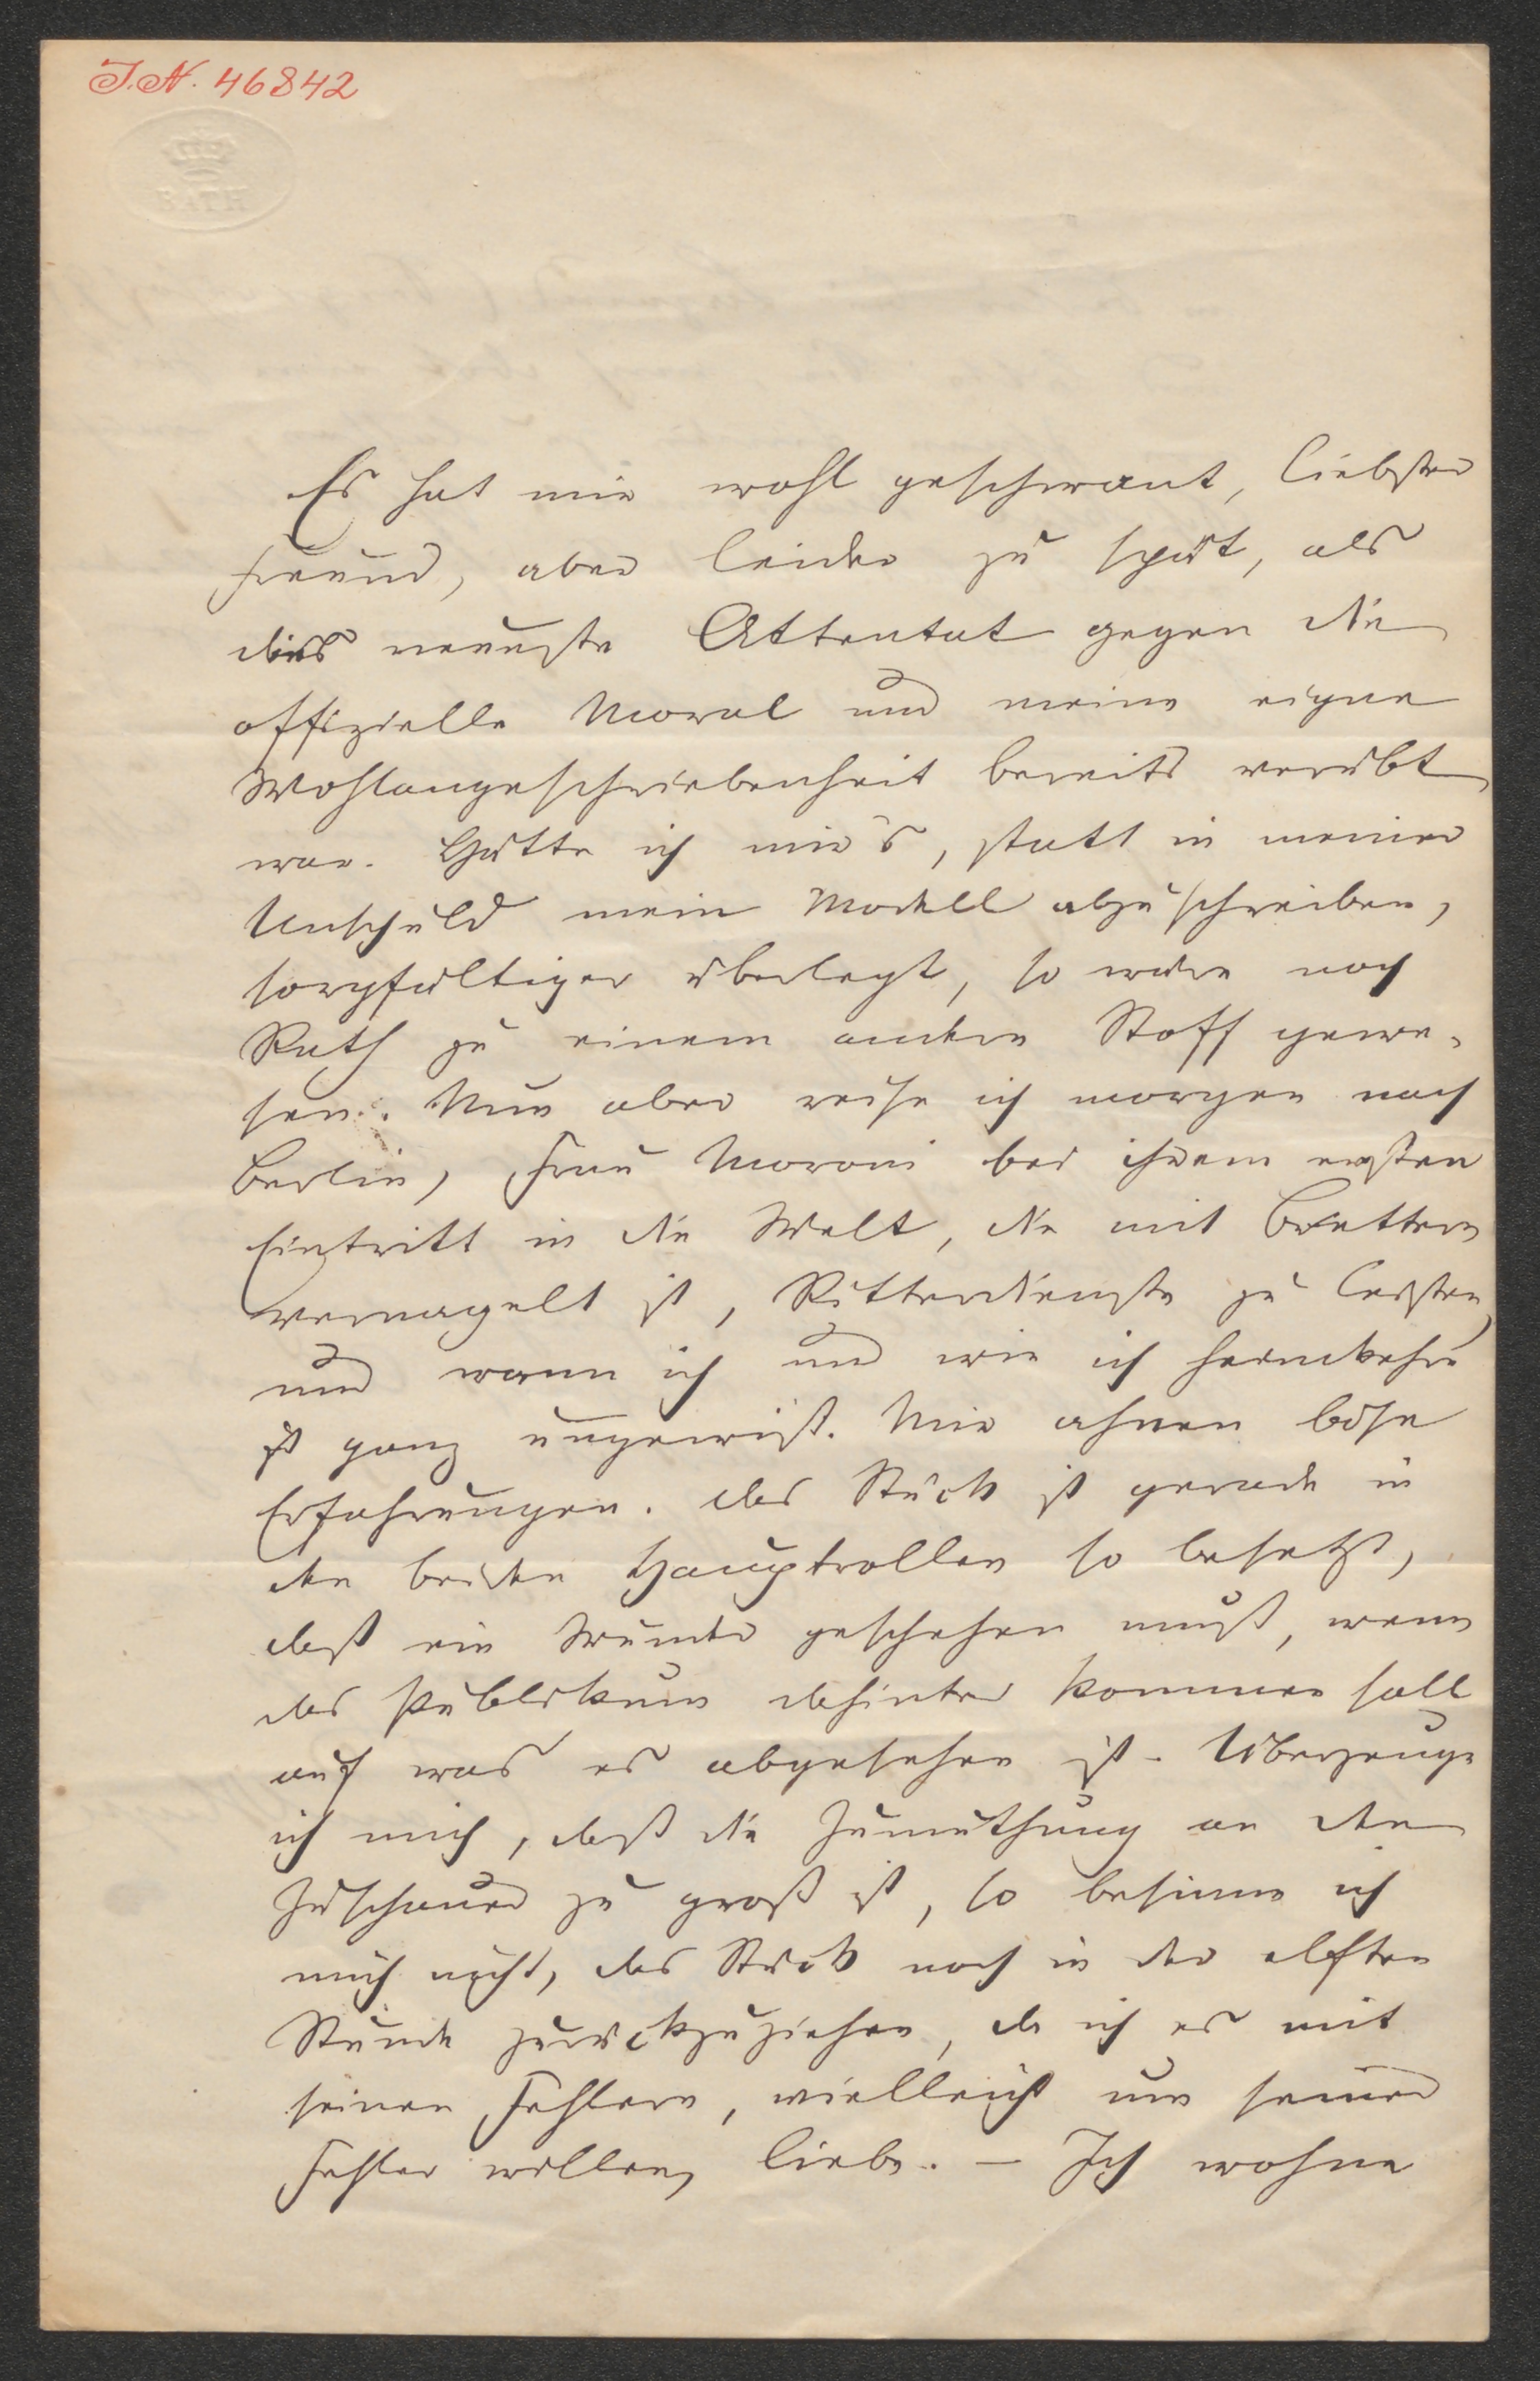 I.N. 46842
BATH
Es hat mir wohl geschwant, liebster
Freund, aber leider zu spät, als
dies neueste Attentat gegen die
offizielle Moral und meine eigne
Wohlangeschriebenheit bereits verübt
war. Hätte ich mir's, statt in meiner
Unschuld mein Modell abzuschreiben,
sorgfältiger überlegt, so wäre noch
Rath zu einem andern Stoff gewe-
sen. Nun aber reise ich morgen nach
Berlin, Frau Moroni bei ihrem ersten
Eintritt in die Welt, die mit Brettern
vernagelt ist, Ritterdienste zu leisten,
und wann ich und wie ich heimkehre
ist ganz ungewiß. Mir ahnen böse
Erfahrungen. Das Stück ist gerade in
den beiden Hauptrollen so besetzt,
daß ein Wunder geschehen muß, wenn
das Publikum dahinter kommen soll
auf was es abgesehen ist. Überzeuge
ich mich, daß die Zumuthung an den
Zuschauer zu groß ist, so besinne ich
mich nicht, das Stück noch in der elften
Stunde zurückzuziehen, da ich es mit
seinen Fehlern, vielleicht um seiner
Fehler willen, liebe. — Ich wohne